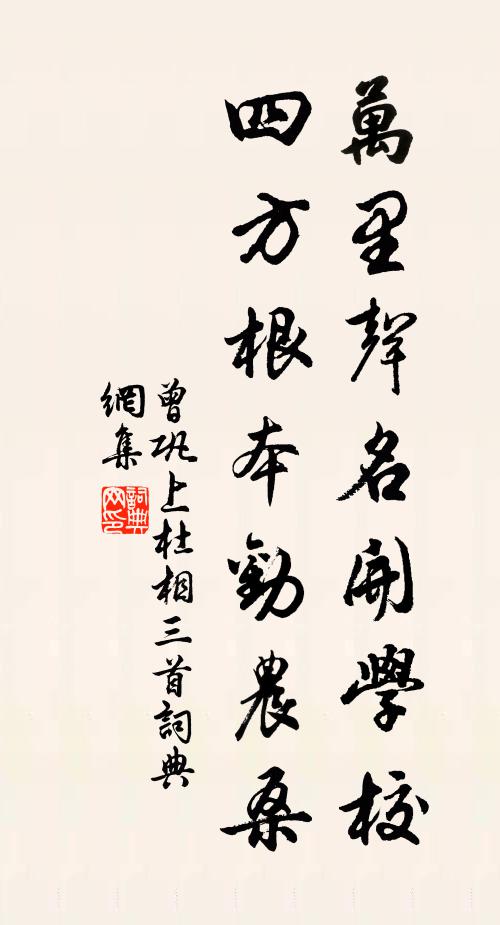 萬里聲名開學校
四方根本勸農桑
曾鞏上杜相三首詞典
網集
詞典網印